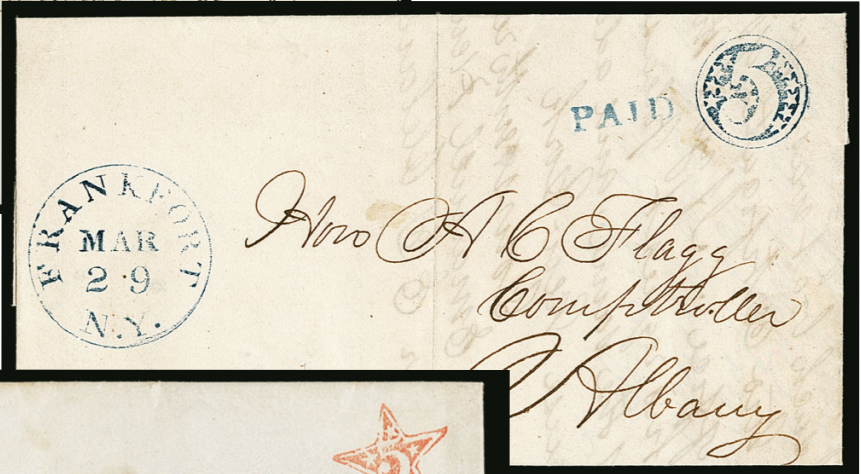 PAID 5
FRANKFORT
MAR
29
N.Y.
Hon A C Flagg
Comptroller
Albany